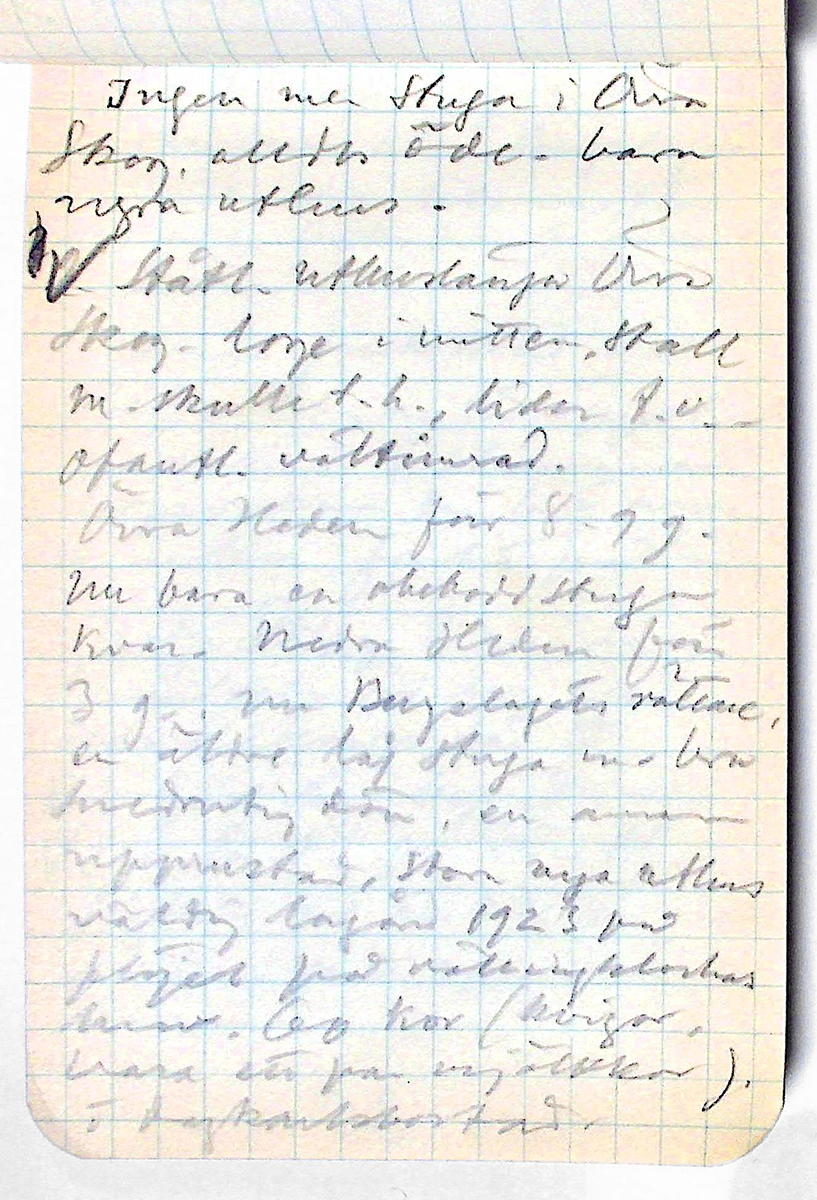 Ingen mer stuga i Övra
Skog, alltds öde. bara
några uthus.
Ståtl. uthuslänga Övra
Skog. loge i mitten, stall
m. skulle t.h., lider t.v. -
ofantl. vältimrad.
Övra Heden förr 8-9 g.
nu bara en obebodd stuga
kvar. Nedra Heden förr
3 g., nu Bergslagets rättare,
en äldre låg stuga m. bra
snedrutig dörr, en annan
upprustad, stora nya uthus
väldig lagård 1923 på
plöjet på
60 kor (kvigor,
bara ett par mjölkkor).
i